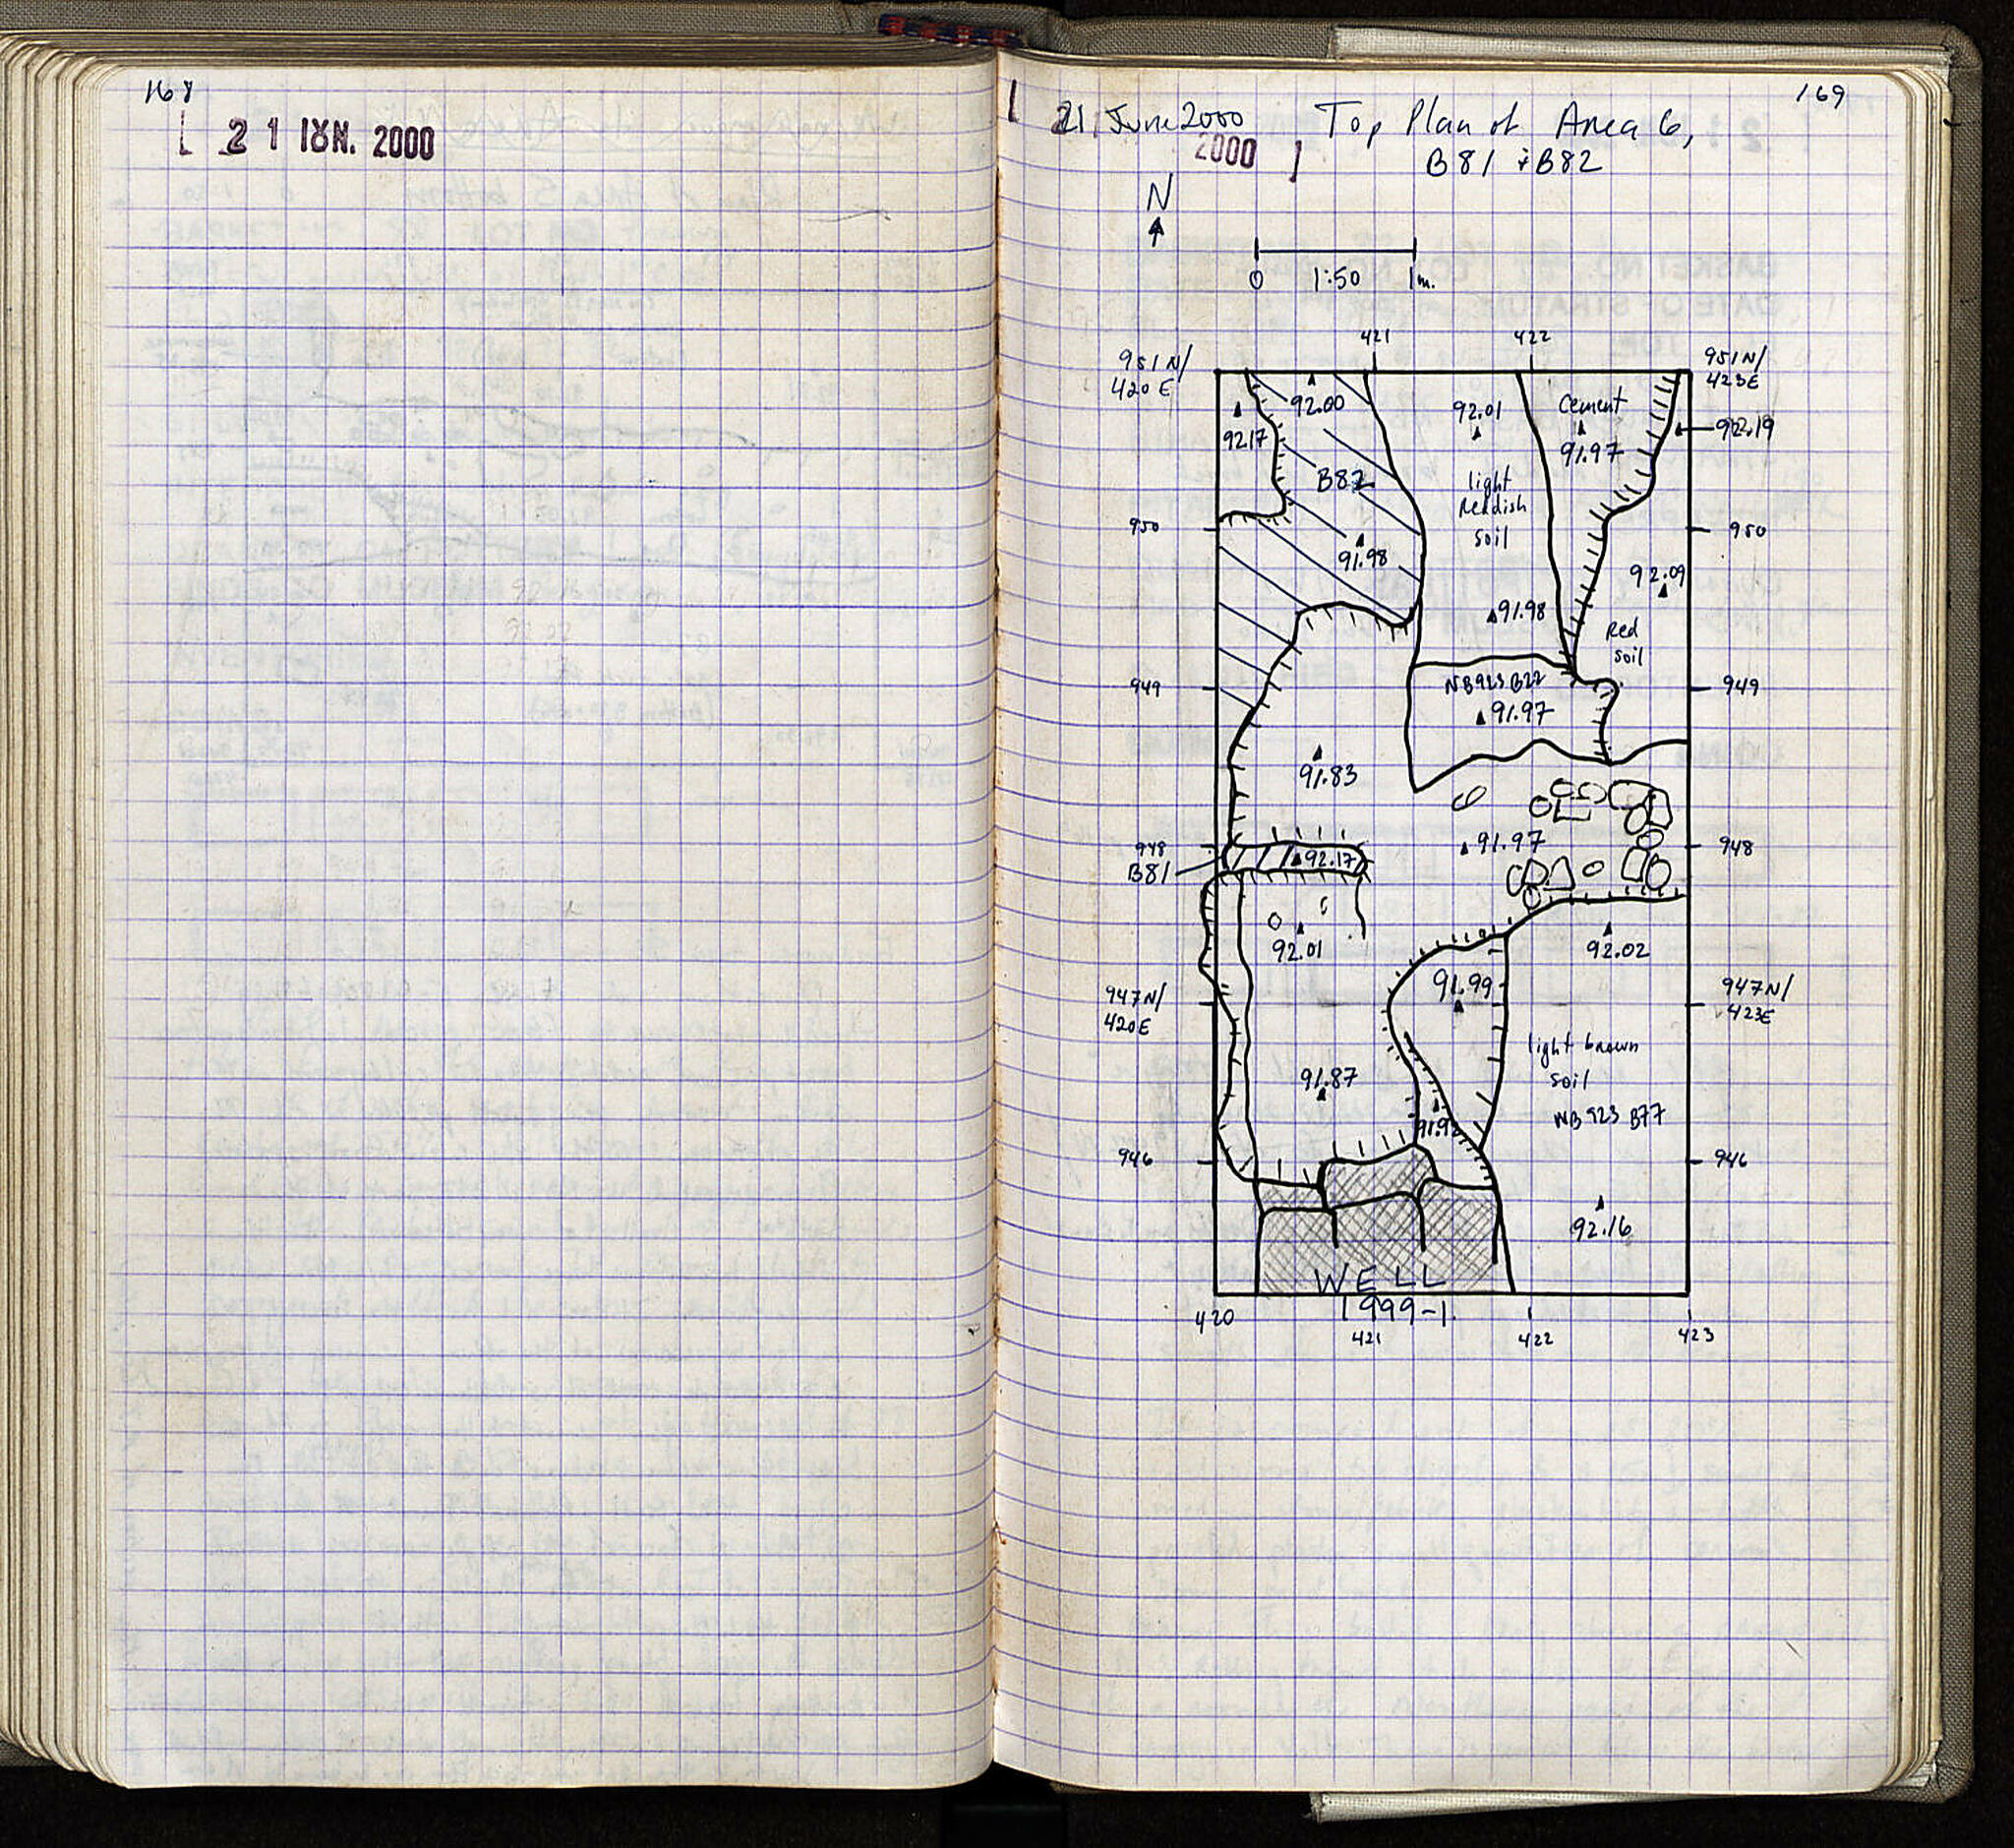 168
2 1 ΙΟΥΝ. 2000
169
21 June 2000 Top Plan of Area 6,
2000
B81 + B82
N
0 1:50 1m.
421
422
951 N/
420 E
951 N/
423 E
92.00
92.01
Cement
92.17
91.97
92.19
B82
light
Reddish
soil
950
950
91.98
92.09
91.98
Red
soil
949
NB923 B22
949
91.97
91.83
948
92.17
91.97
948
B81
92.01
92.02
91.99
947 N/
420 E
947 N/
423 E
light brown
soil
91.87
NB 923 B77
946
946
92.16
WELL
1999-1.
420
421
422
423